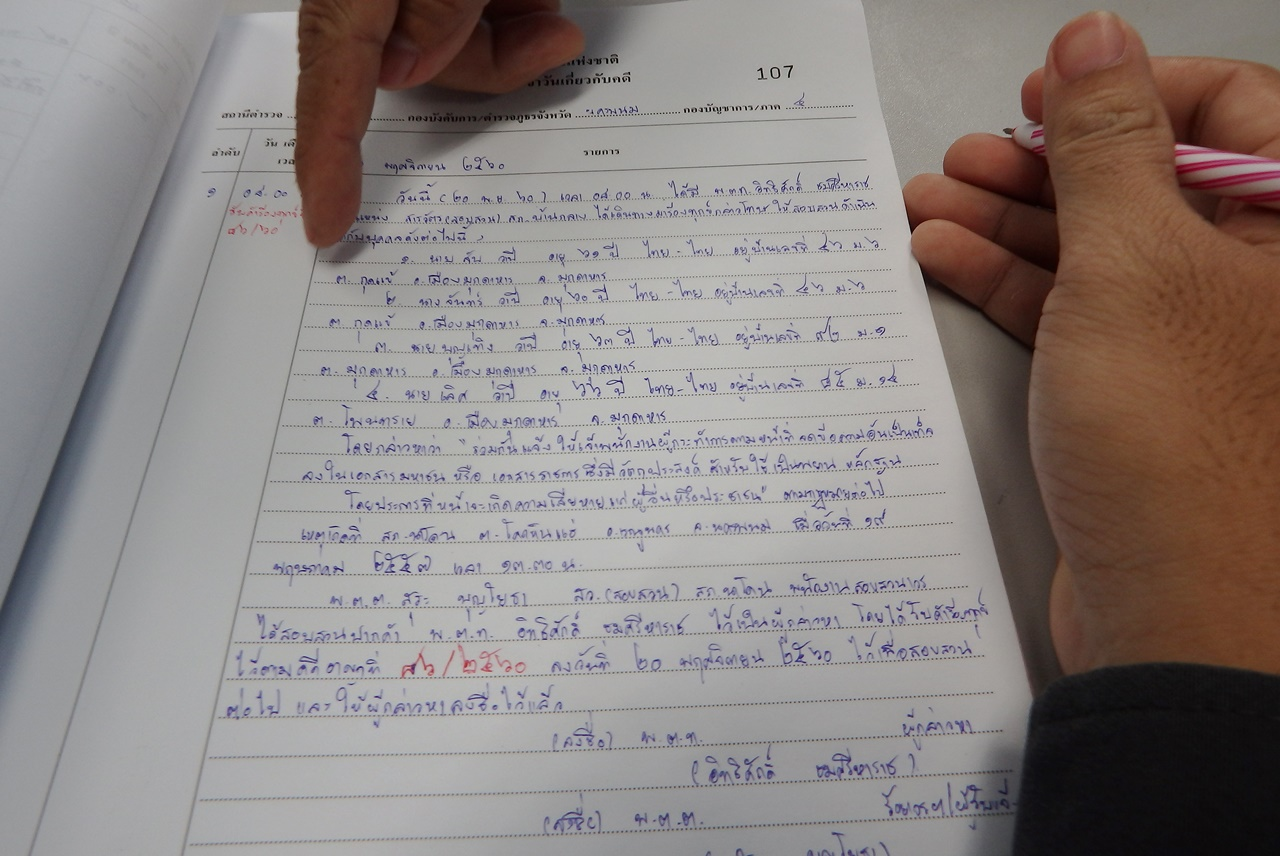 แห่งชาติ
วันเกี่ยวกับคดี
107
สถานีตำรวจ กองบังคับการ/ตำรวจภูธรจังหวัด นครพนม กองบัญชาการ/ภาค ๔
ลำดับ วัน รายการ
พฤศจิกายน ๒๕๖๐
๑ ๐๘.๐๐ วันนี้ (๒๐ พ.ย. ๖๐) เวลา ๐๘.๐๐ น. ได้มี พ.ต.ท. อิทธิศักดิ์ ชมศรีหาราช
สารวัตร(สอบสวน) สภ. ได้เดินทางมาร้องทุกข์กล่าวโทษ ให้สอบสวนดำเนิน
๘๖/๖๐ กับบุคคลดังต่อไปนี้
๑. นาย วาปี อายุ ๖๑ ปี ไทย - ไทย อยู่บ้านเลขที่ ๔๖ ม.๖
ต. กุดแข้ อ.เมืองมุกดาหาร จ. มุกดาหาร
๒ นางจันทร์ วาปี อายุ ๖๐ ปี ไทย - ไทย อยู่บ้านเลขที่ ๔๖ ม.๖
ต. กุดแข้ อ.เมืองมุกดาหาร จ.มุกดาหาร
๓. นายบุญเทิง วาปี อายุ ๖๓ ปี ไทย - ไทย อยู่บ้านเลขที่ ๙๒ ม.๑
ต. มุกดาหาร อ.เมืองมุกดาหาร จ. มุกดาหาร
๔. นายเลิศ วาปี อายุ ๖๖ ปี ไทย - ไทย อยู่บ้านเลขที่ ๔๕ ม.๑๔
ต. โพนทราย อ.เมืองมุกดาหาร จ. มุกดาหาร
โดยกล่าวหาว่า "ร่วมกันแจ้งให้เจ้าพนักงานผู้กระทำการตามหน้าที่ จดข้อความอันเป็นเท็จ
ลงในเอกสารมหาชน หรือ เอกสารราชการ ซึ่งมีวัตถุประสงค์ สำหรับใช้เป็นพยาน หลักฐาน
โดยประการที่น่าจะเกิดความเสียหายแก่ผู้อื่นหรือประชาชน" ตามกฎหมายต่อไป
เหตุเกิดที่ สภ.นาโดน ต. โคกหินแฮ่ อ.เรณูนคร จ.นครพนม เมื่อวันที่ ๑๙
พฤษภาคม ๒๕๕๗ เวลา ๑๓.๓๐ น.
พ.ต.ต. สุระ บุญไชยธา สว.(สอบสวน) สภ.นาโดน พนักงานสอบสวนเวร
ได้สอบสวนปากคำ พ.ต.ท. อิทธิศักดิ์ ชมศรีหาราช ไว้เป็นผู้กล่าวหา โดยได้รับคำร้องทุกข์
ไว้ตามคดีอาญาที่ ๘๖/๒๕๖๐ ลงวันที่ ๒๐ พฤศจิกายน ๒๕๖๐ ไว้เพื่อสอบสวน
ต่อไป และให้ผู้กล่าวหาลงชื่อไว้แล้ว
(ลงชื่อ) พ.ต.ท. ผู้กล่าวหา
(อิทธิศักดิ์ ชมศรีหาราช)
(ลงชื่อ) พ.ต.ต.